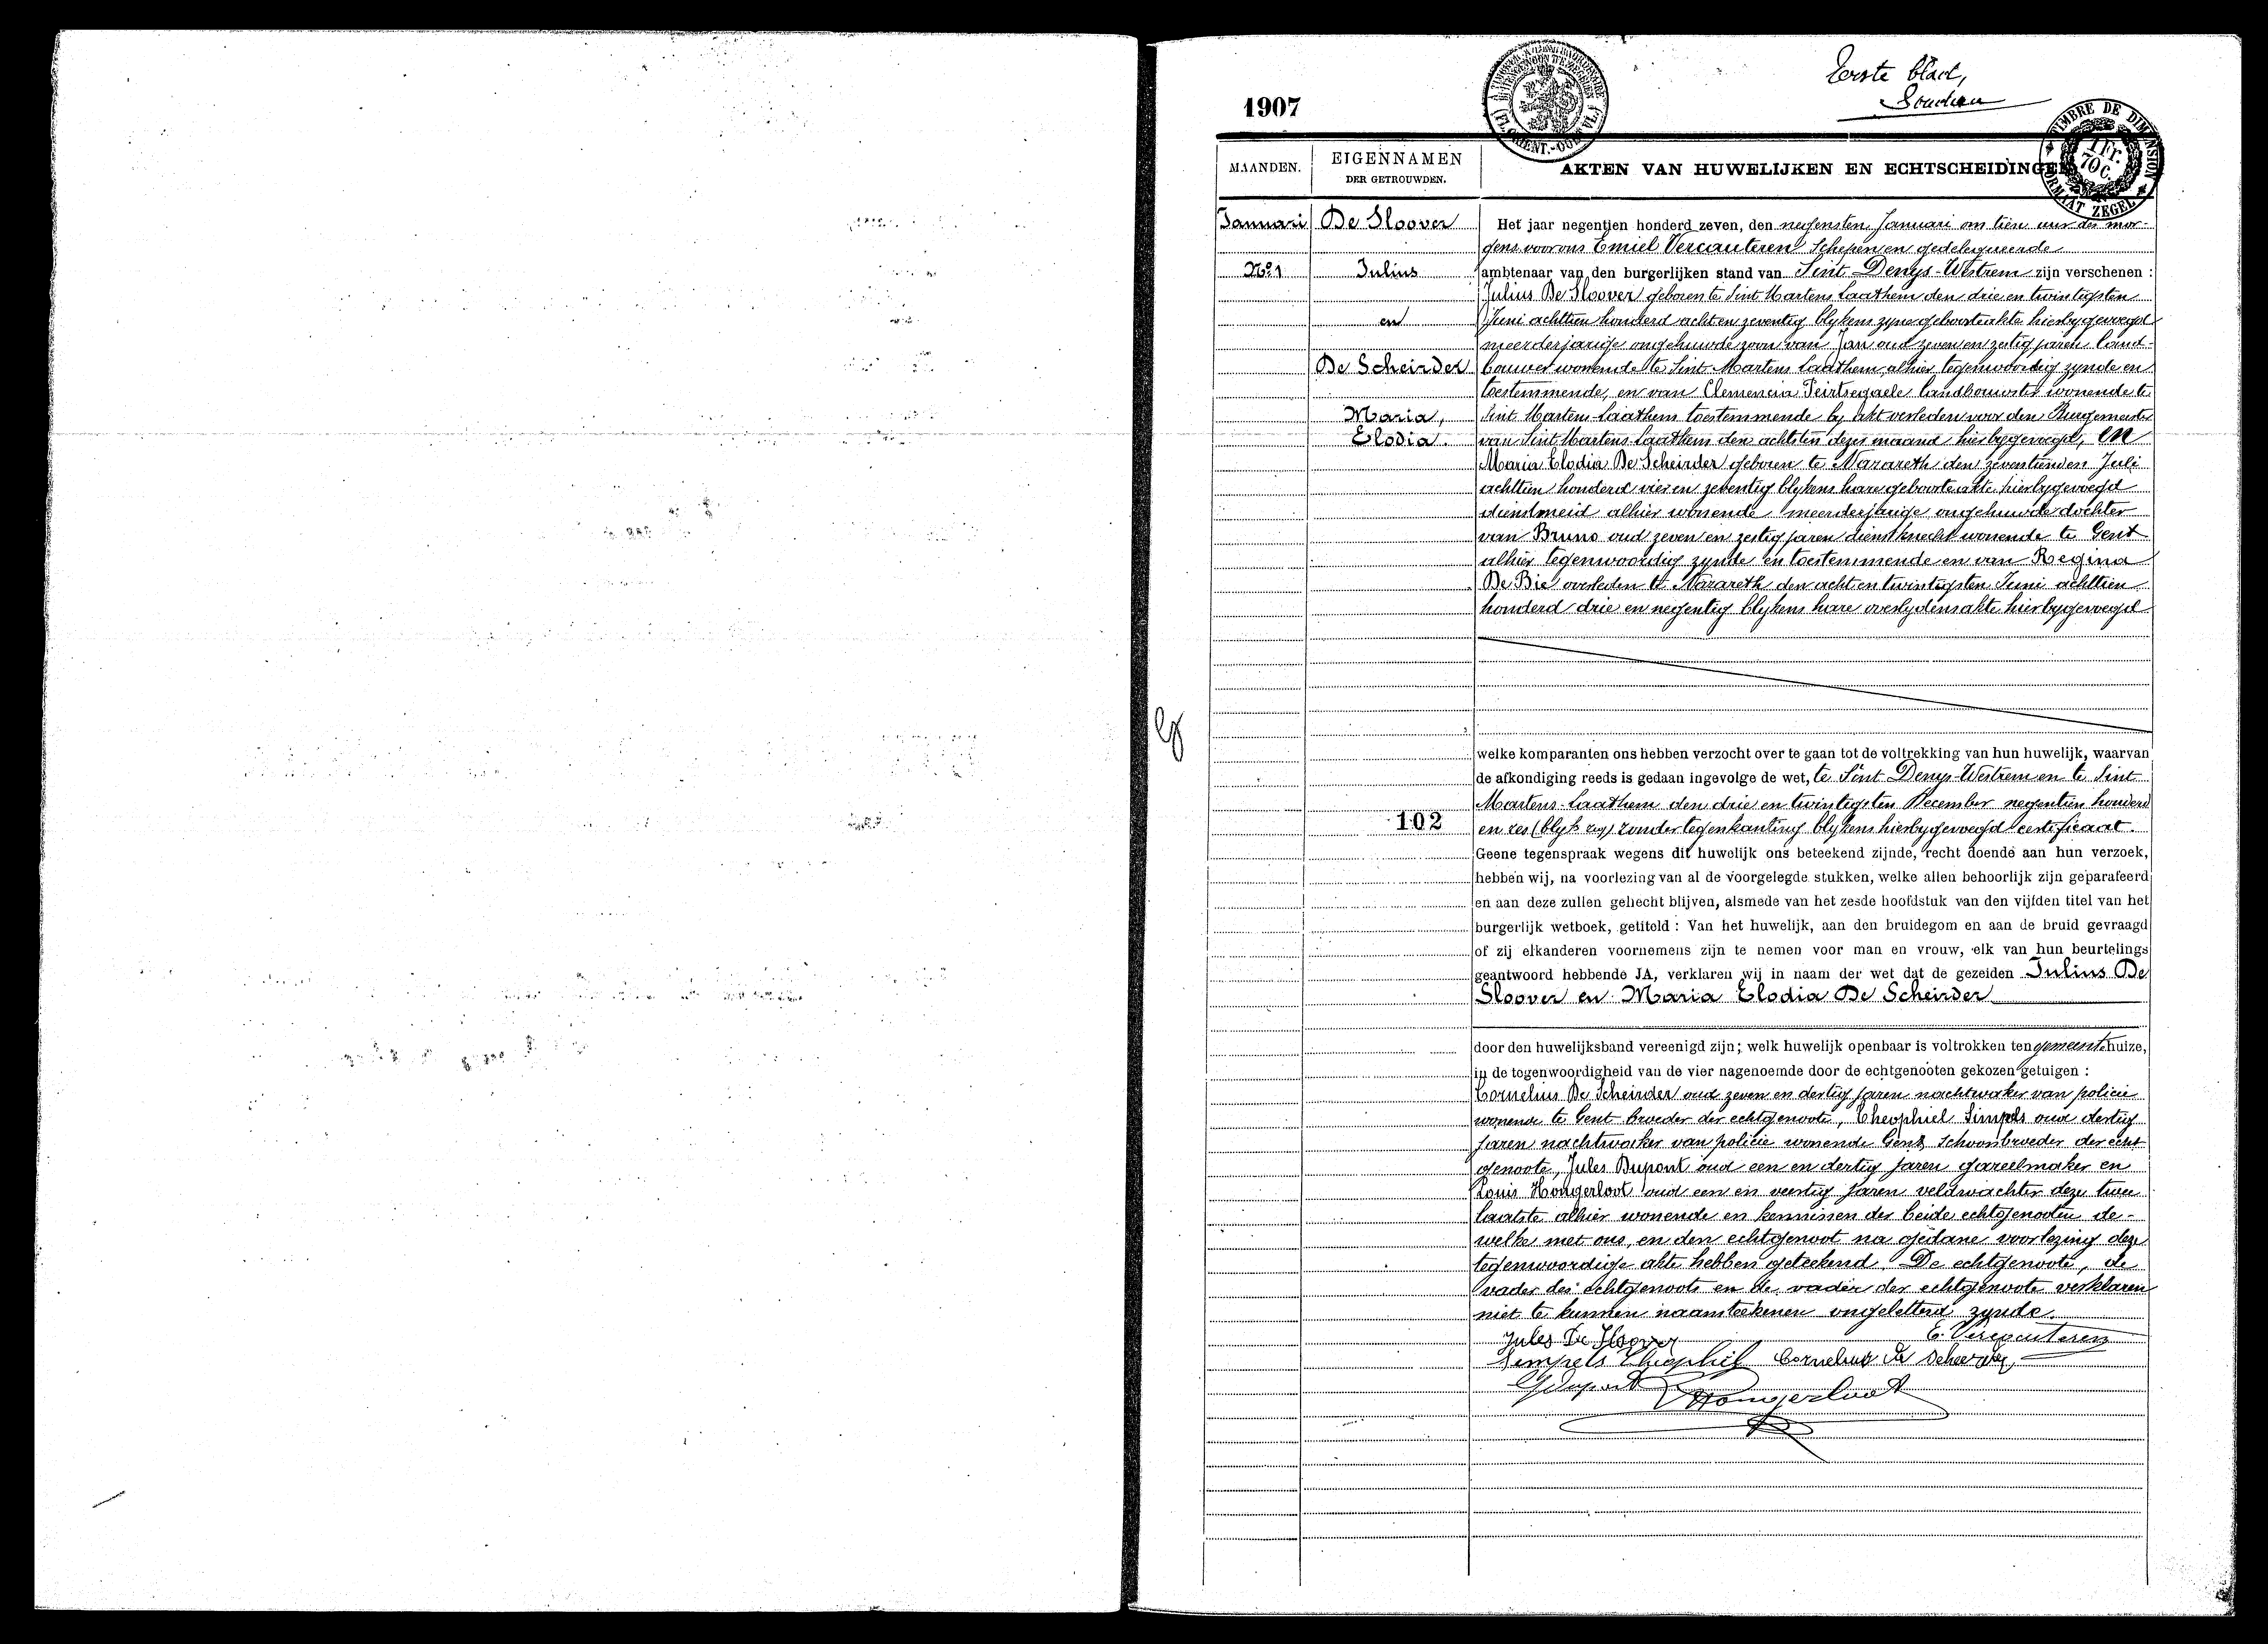 Eerste blad,
1907
TIMBRE DE DIMENSION
1 Fr. 70 C.
FORMAAT ZEGEL
MAANDEN.
EIGENNAMEN
DER GETROUWDEN.
AKTEN VAN HUWELIJKEN EN ECHTSCHEIDINGE
Januari
No. 1
De Sloover
Julius
en
De Scheirder
Maria,
Elodia.
102
Het jaar negentien honderd zeven, den negensten Januari om tien uur des mor-
gens voor ons Emiel Vercauteren Schepen en gedelegueerde
ambtenaar van den burgerlijken stand van Sint Denys-Westrem zijn verschenen :
Julius De Sloover geboren te Sint Martens Laathem den drie en twintigsten
Juni achttien honderd acht en zeventig blykens zyne geboorteakte hierbygevoegd
meerderjarige ongehuwde zoon van Jan oud zeven en zestig jaren land-
bouwer wonende te Sint Martens Laathem alhier tegenwoordig zynde en
toestemmende, en van Clemencia landbouwster wonende te
Sint Martens-Laathem toestemmende by akt verleden voor den Burgemeester
van Sint Martens-Laathem den achtsten dezer maand hierbygevoegd, en
Maria Elodia De Scheirder geboren te Nazareth den zeventienden Juli
achttien honderd vier en zeventig blykens hare geboorteakte hierbygevoegd
dienstmeid alhier wonende meerderjarige ongehuwde dochter
van Bruno oud zeven en zestig jaren dienstknecht wonende te Gent
alhier tegenwoordig zynde en toestemmende en van Regina
De Bie overleden te Nazareth den acht en twintigsten Juni achttien
honderd drie en negentig blykens hare overlydensakte hierbygevoegd
welke komparanten ons hebben verzocht over te gaan tot de voltrekking van hun huwelijk, waarvan
de afkondiging reeds is gedaan ingevolge de wet, te Sint Denys-Westrem en te Sint
Martens-Laathem den drie en twintigsten December negentien honderd
en zes (blyk ) zonder tegenkanting blykens hierbygevoegd certificaat.
Geene tegenspraak wegens dit huwelijk ons beteekend zijnde, recht doende aan hun verzoek,
hebben wij, na voorlezing van al de voorgelegde stukken, welke allen behoorlijk zijn geparafeerd
en aan deze zullen gehecht blijven, alsmede van het zesde hoofdstuk van den vijfden titel van het
burgerlijk wetboek, getiteld : Van het huwelijk, aan den bruidegom en aan de bruid gevraagd
of zij elkanderen voornemens zijn te nemen voor man en vrouw, elk van hun beurtelings
geantwoord hebbende JA, verklaren wij in naam der wet dat de gezeiden Julius De
Sloover en Maria Elodia De Scheirder
door den huwelijksband vereenigd zijn; welk huwelijk openbaar is voltrokken ten gemeentehuize,
in de tegenwoordigheid van de vier nagenoemde door de echtgenooten gekozen getuigen :
Cornelius De Scheirder oud zeven en dertig jaren nachtwaker van policie
wonende te Gent broeder der echtgenoote, Theophiel Simpels oud dertig
jaren nachtwaker van policie wonende Gent Schoonbroeder der echt
genoote, Jules Dupont oud een en dertig jaren gareelmaker en
Louis Hongerloot oud een en veertig jaren veldwachter deze twee
laatste alhier wonende en kennissen der beide echtgenooten de-
welke met ons, en den echtgenoot na gedane voorlezing deze
tegenwoordige akte hebben geteekend. De echtgenoote, de
vader des echtgenoots en de vader der echtgenoote verklaren
niet te kunnen naamteekenen ongeletterd zynde.
Jules De Sloover E. Vercauteren
Sempels Theophil Cornelius De Scheerder,
J Dupont L Hongerloot